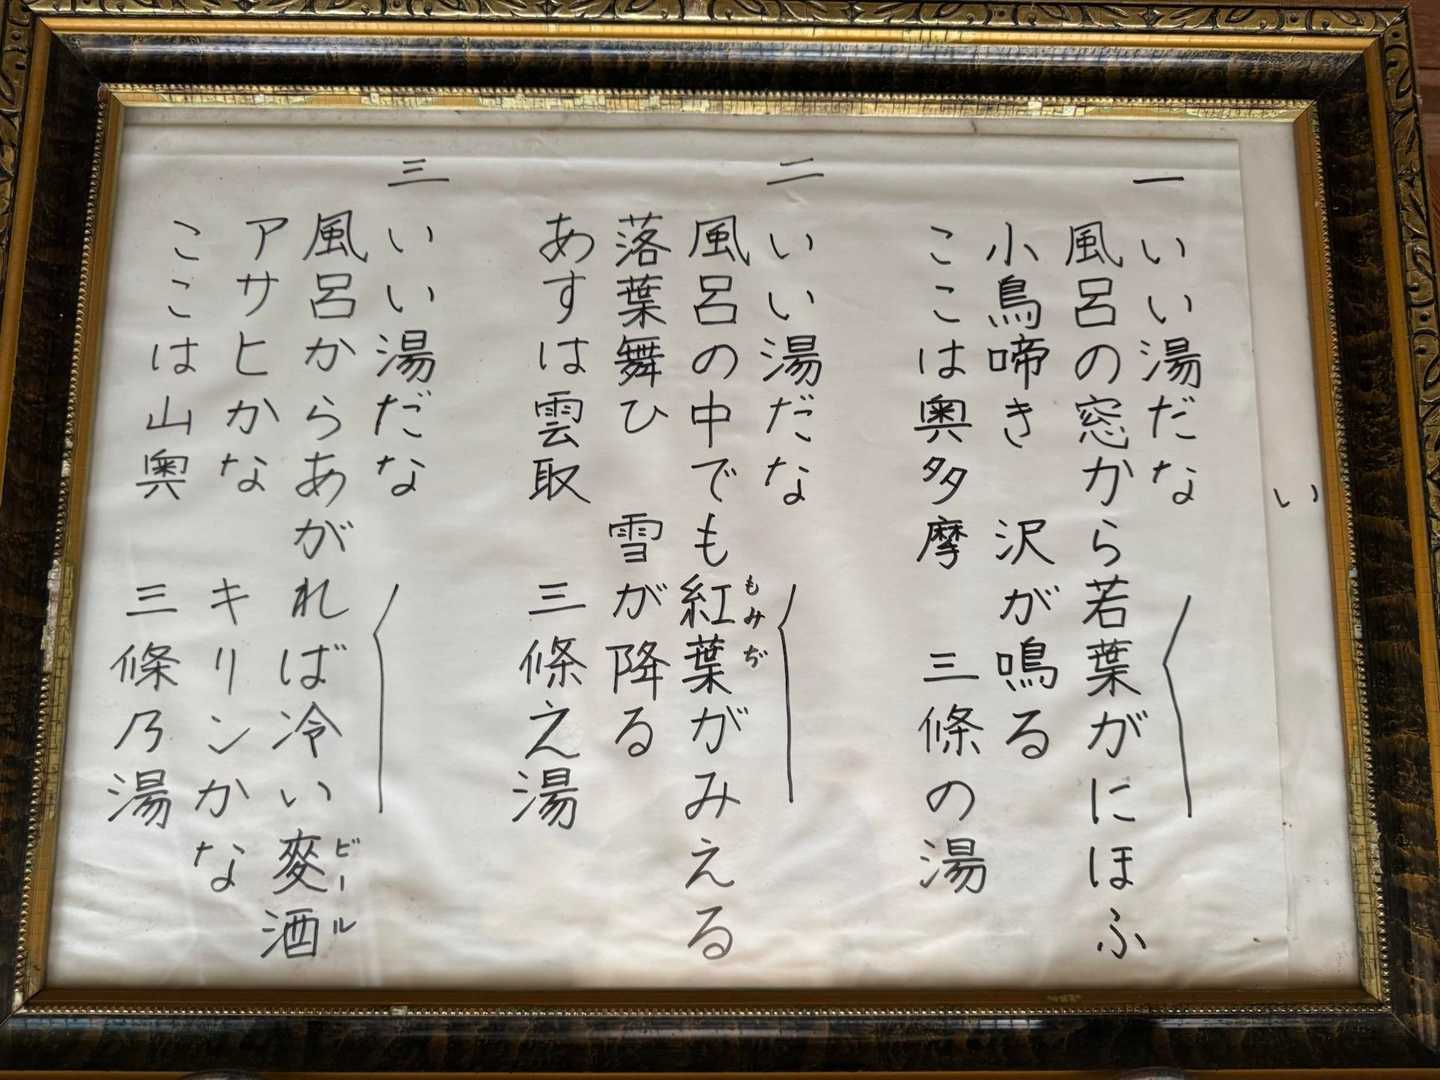 い
一
いい湯だな 〱
風呂の窓から若葉がにほふ
小鳥啼き 沢が鳴る
ここは奥多摩 三條の湯
二
いい湯だな 〱
風呂の中でも紅葉がみえる
もみぢ
落葉舞ひ 雪が降る
あすは雲取 三條之湯
三
いい湯だな 〱
風呂からあがれば冷い麥酒
ビール
アサヒかな キリンかな
ここは山奥 三條乃湯